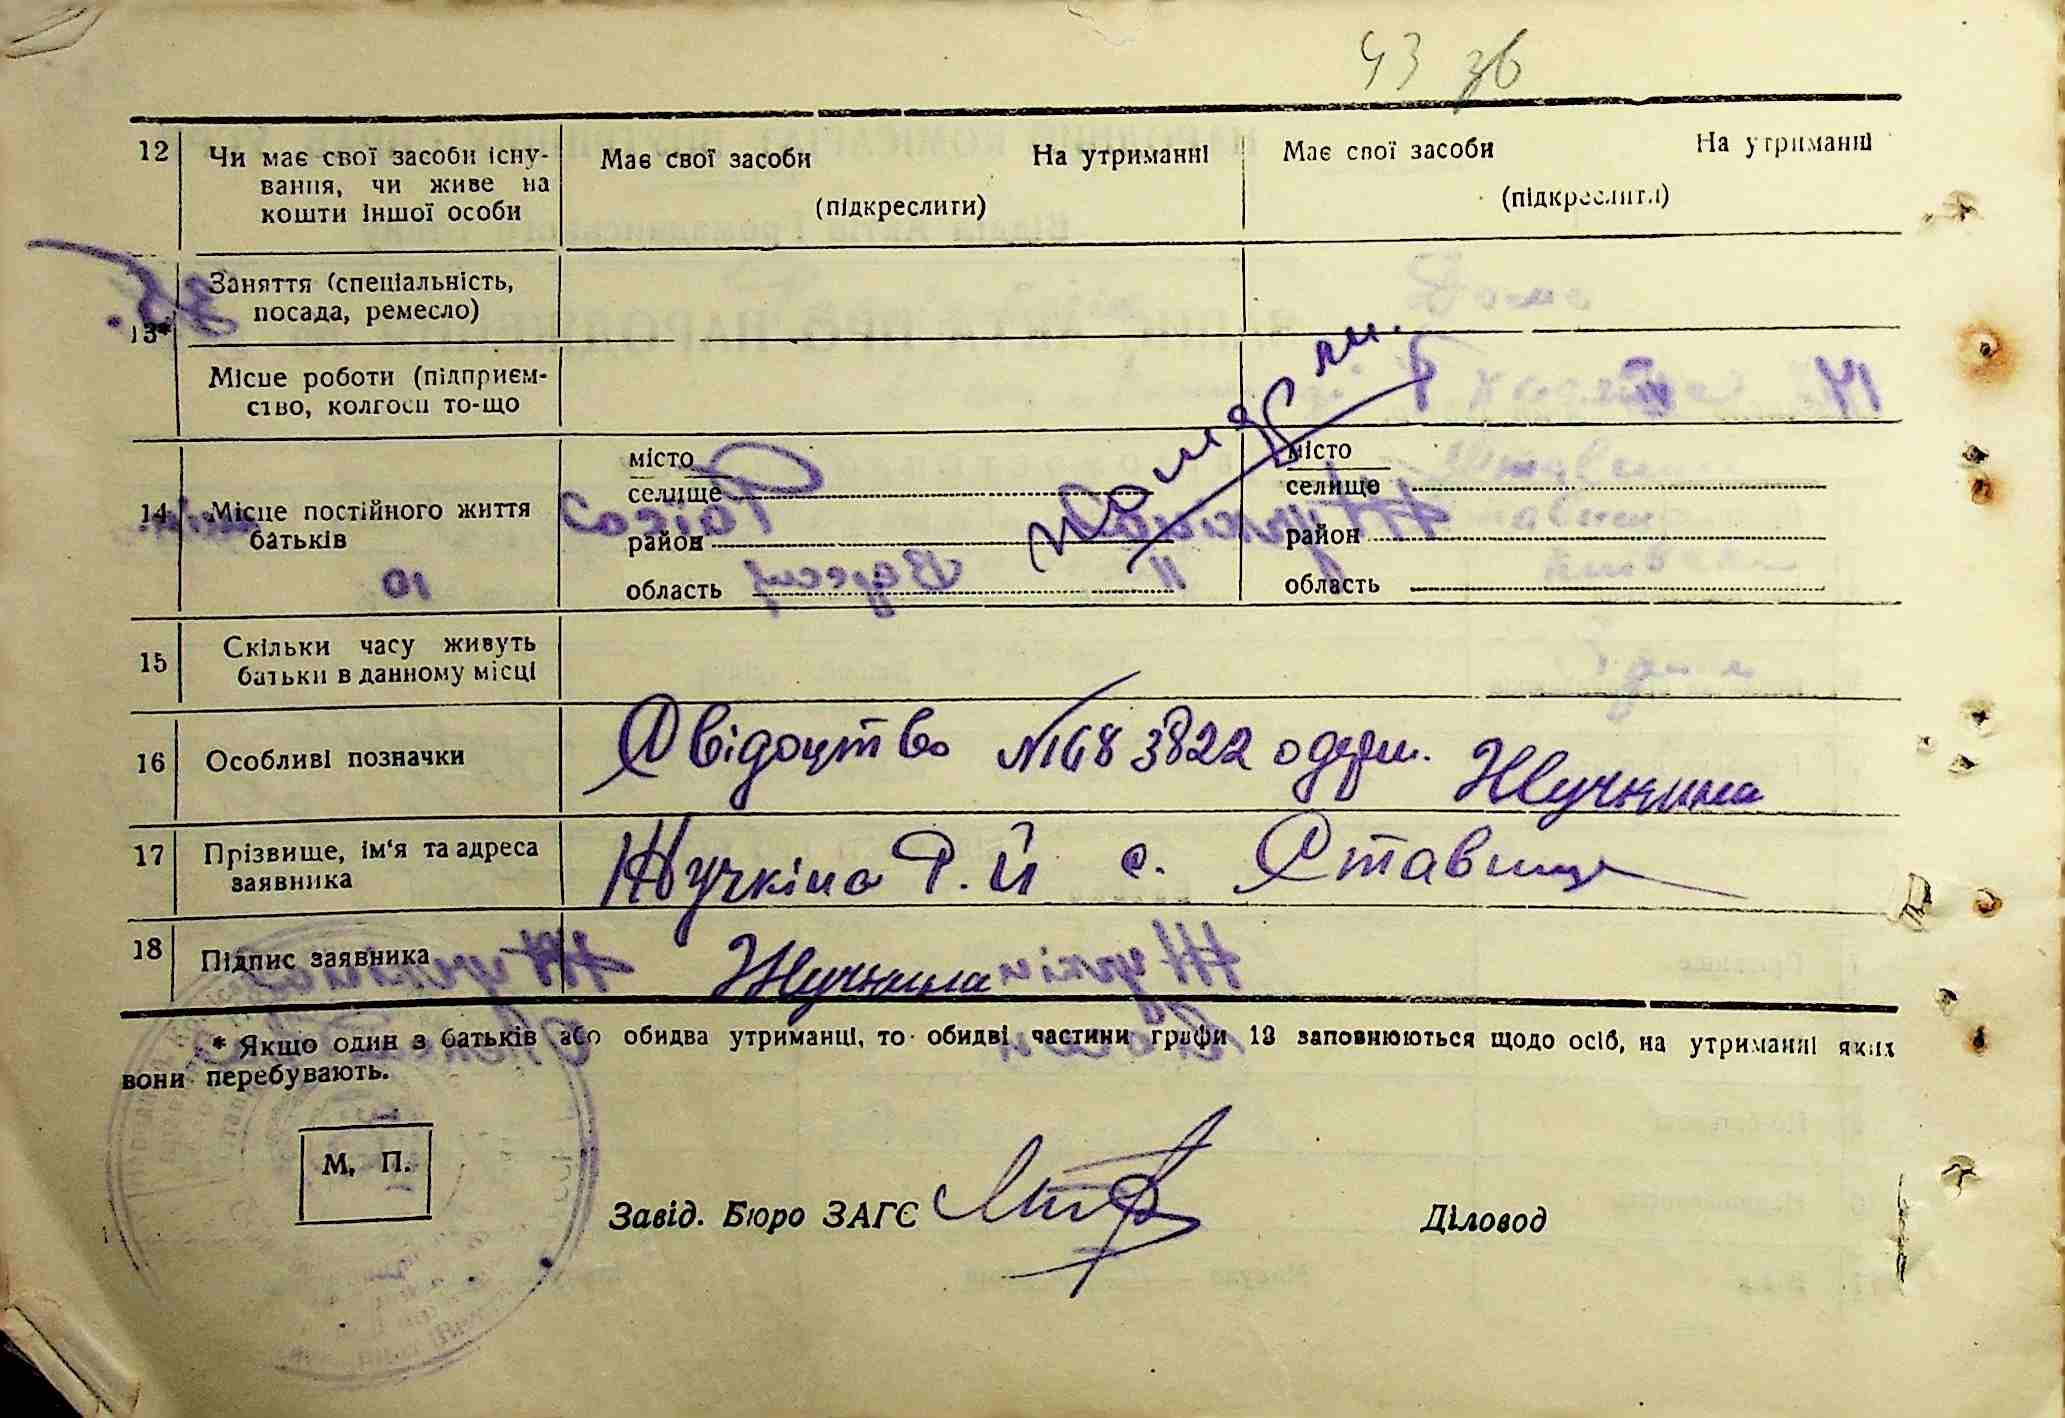 43 зв
12 Чи має свої засоби існу- Має свої засоби На утриманні Має свої засоби На утриманні
вання, чи живе на
кошти іншої особи (підкреслити) (підкреслити)
13* Заняття (спеціальність,
посада, ремесло)
Місце роботи (підприєм-
ство, колгосп то-що
14 Місце постійного життя
батьків
місто місто
селище селище
район район
область область
15 Скільки часу живуть
батьки в данному місці
16 Особливі позначки Свідоцтво № 683822 одерж. Жучкина
17 Прізвище, ім'я та адреса
заявника Жучкіна Р. Й с. Ставище
18 Підпис заявника Жучкина
* Якщо один з батьків або обидва утриманці, то обидві частини графи 13 заповнюються щодо осіб, на утриманні яких
вони перебувають.
М. П.
Завід. Бюро ЗАГС Діловод